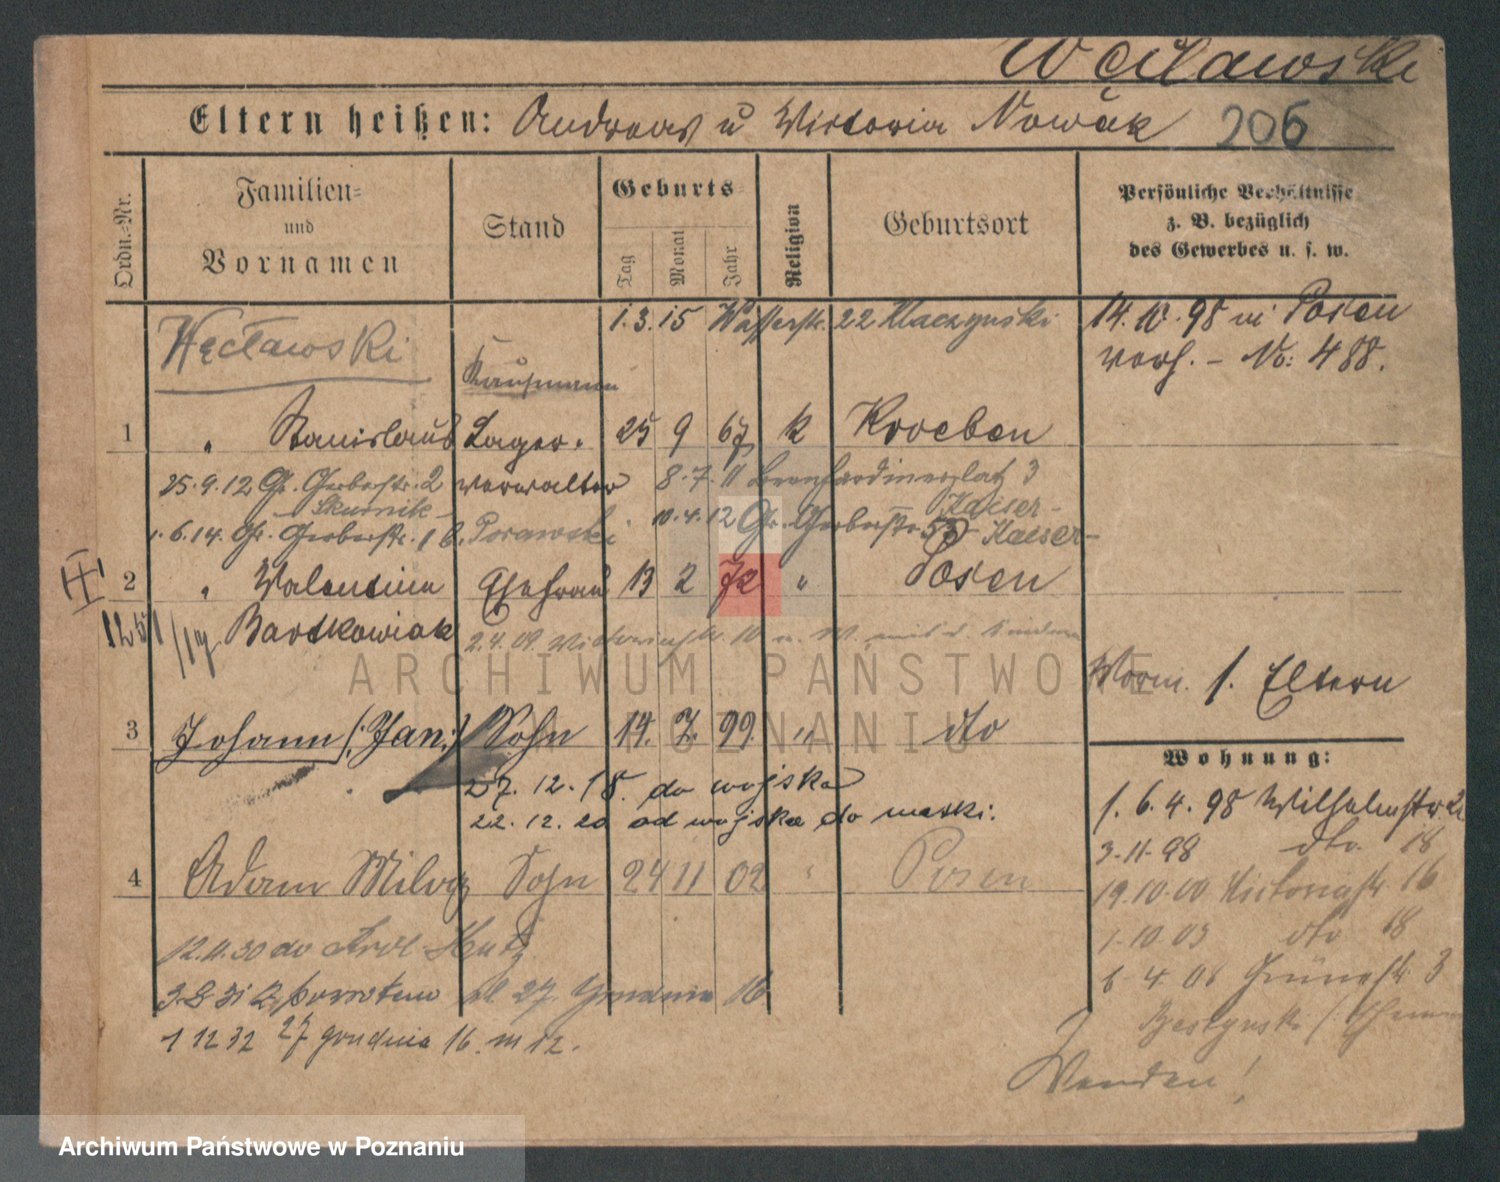 Węcławski
Eltern heißen: Andreas u Victoria Nowak 206
Ordn.=Nr.
Familien=
und
Vornamen
Stand
Geburts
Tag
Monat
Jahr
Religion
Geburtsort
Persönliche Verhältnisse
z. B. bezüglich
des Gewerbes u. s. w.
1.3.15 Wasserstr. 22 Klaczynski
Węcławski
Kaufmann
14.10.98 in Posen
verh. - No: 488.
1 " Stanislaus Lager- 25 9 67 k Kroeben
25.9.12 Gr. Gerberstr. 2 verwalter 8.7.11 Bernhardinerplatz 3
Skurnik 10.4.12 Gr. Gerberstr. 53 Kaiser-
1.6.14 Gr. Gerberstr. 18. Porawski Kaiser-
2 " Valentina Ehefrau 13 2 72 " Posen
1251/17 Bartkowiak 2.4.09 Victoriastr. 10
Worm. s. Eltern
3 Johann (:Jan:) Sohn 14. 7. 99. " dto
27.12.18. do wojska
22.12.20 od wojska do
4 Adam Sohn 24 11 02 " Posen
12.11.30 do
3.8.31 z powrotem pl 27 Grudnia 16
1 12 32 27 grudnia 16. m 12.
Wohnung:
1. 6.4.98 Wilhelmstr.
3.11.98 dto. 18
19.10.00 Victoriastr. 16
1.10.03 dto 18
6.4.08 Grünestr. 3
Wenden!
ARCHIWUM PAŃSTWOWE
W POZNANIU
Archiwum Państwowe w Poznaniu